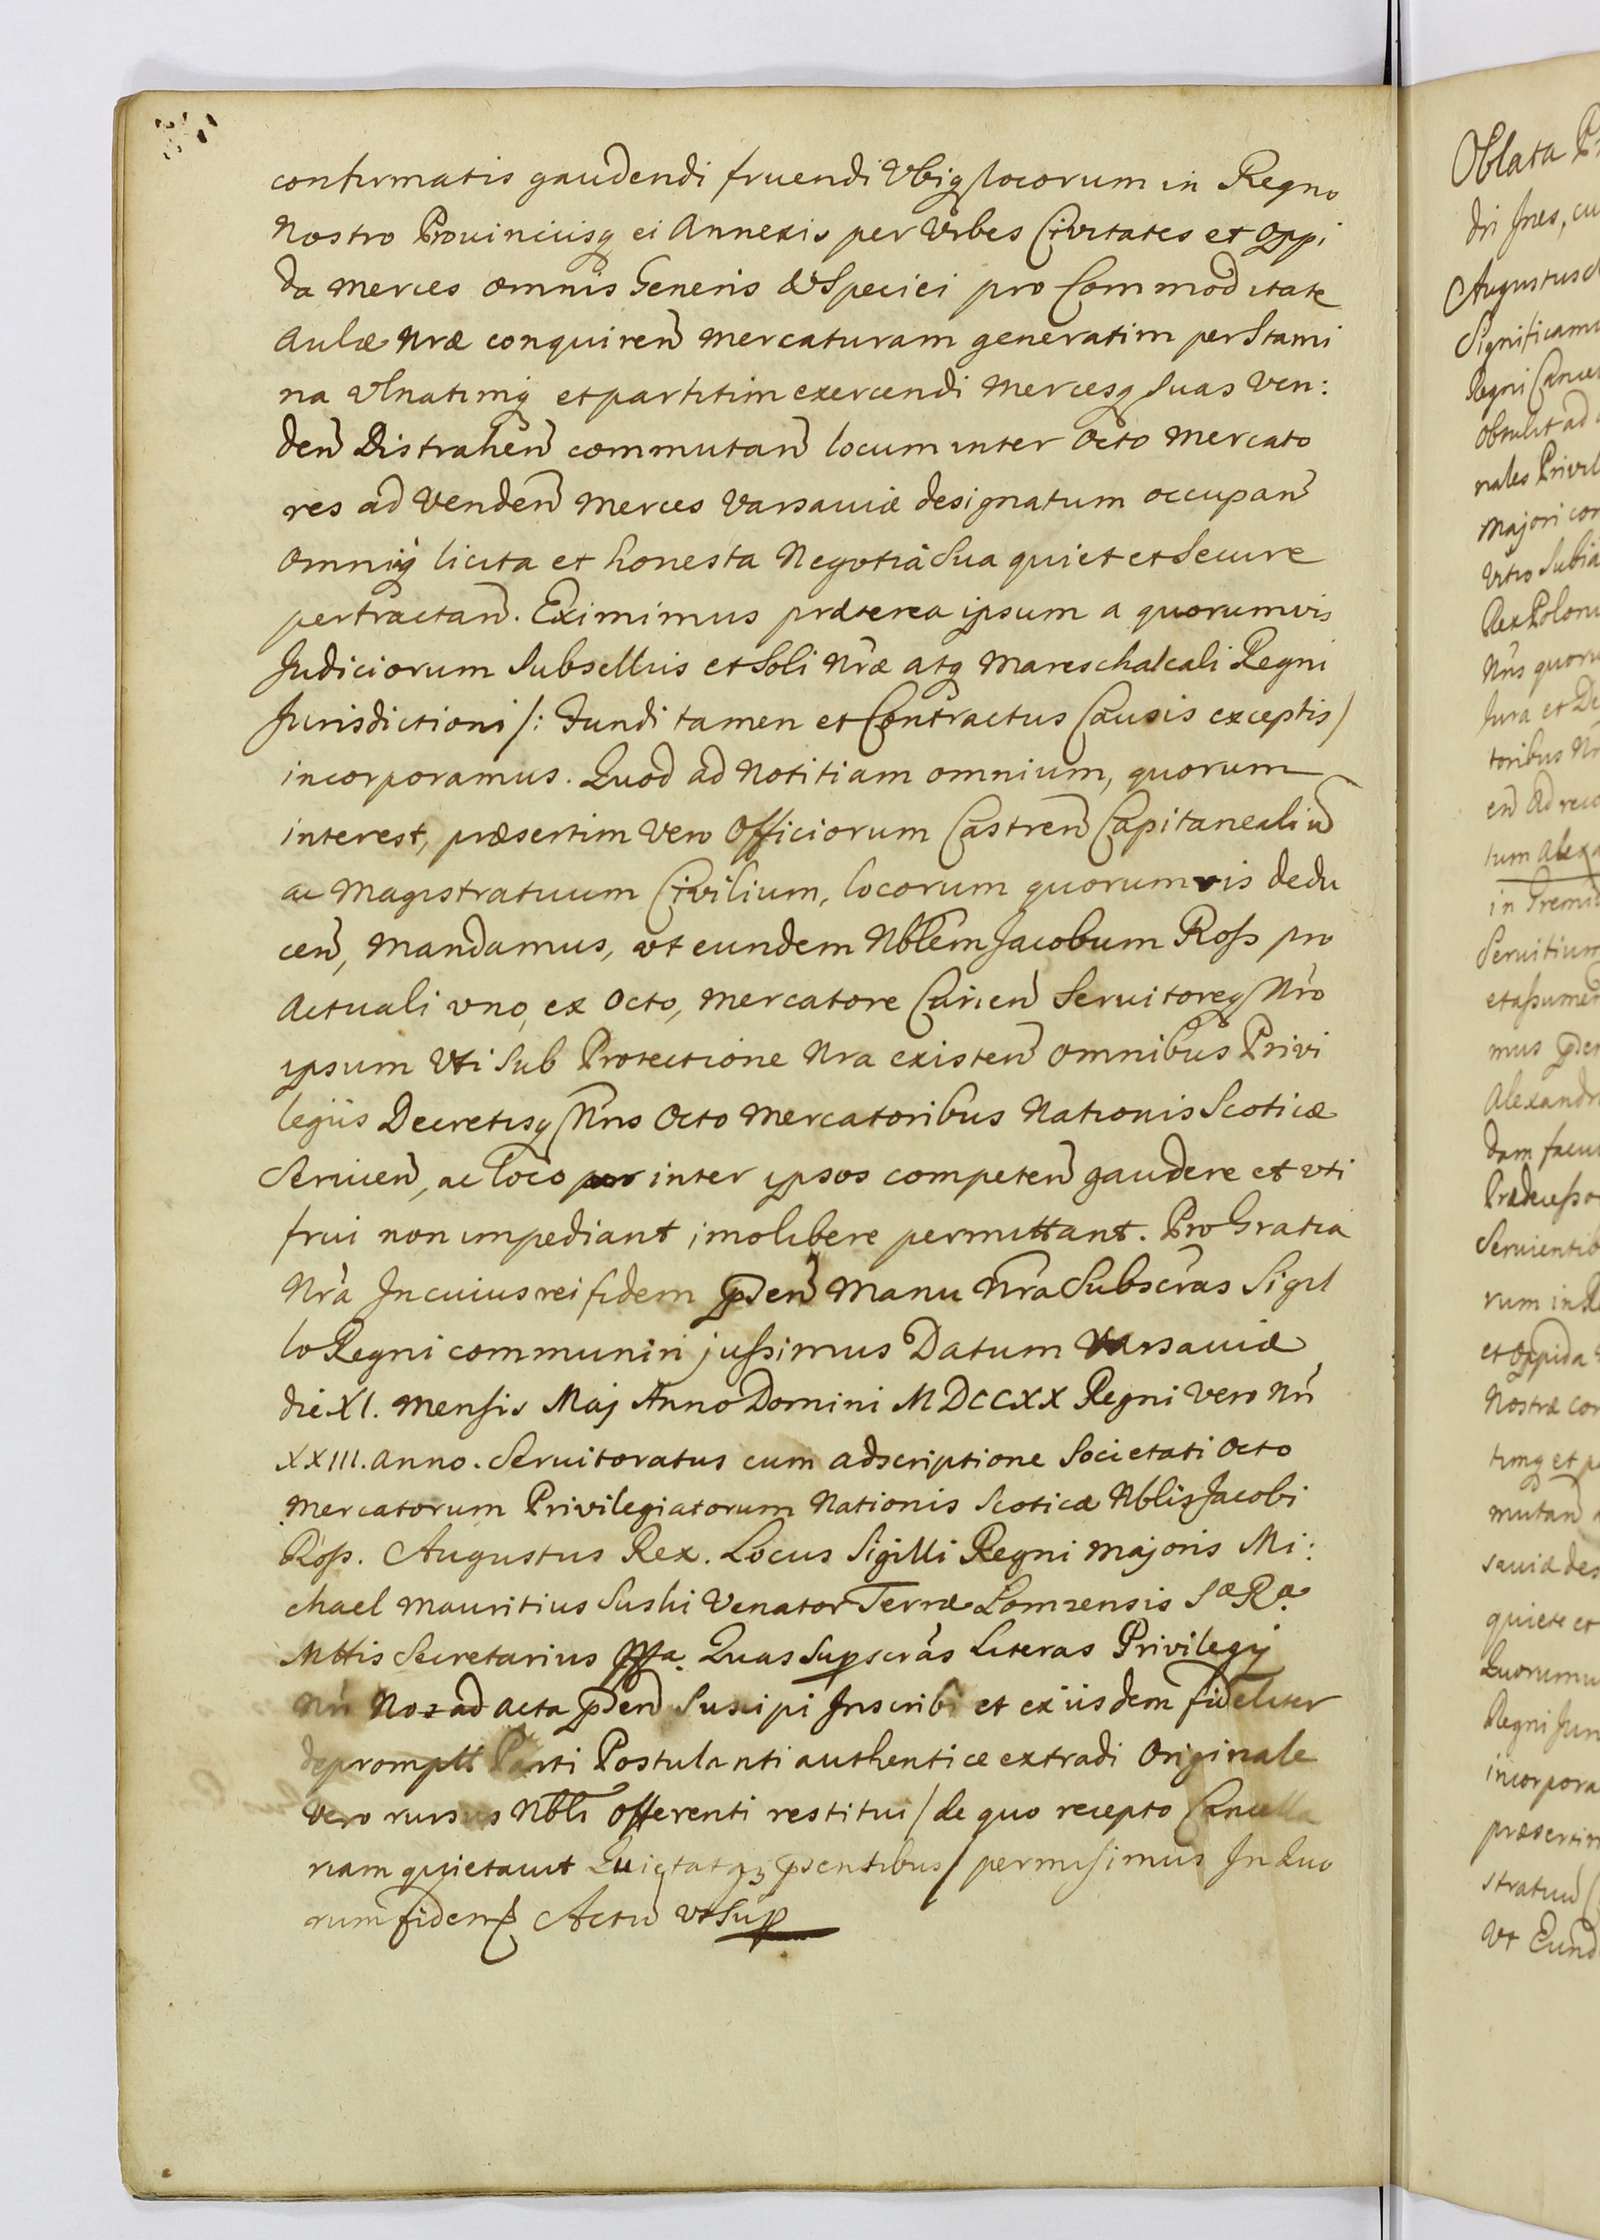 confirmatis gaudendi fruendi Vbiq locorum in Regno
Nostro Prouinciisq ei Annexis per Vrbes Civitates et Oppi
da Merces omnis Generis & Speciei pro Commoditate
Aulæ Nræ conquiren Mercaturam generatim per Stami
na Vlnatimq et partitim exercendi Mercesq suas Ven:
den Distrahen commutan locum inter Octo Mercato
res ad Venden Merces Varsauiæ designatum occupan
Omniq licita et honesta Negotia Sua quiet et Secure
pertractan. Eximimus præterea ipsum a quorumvis
Judiciorum Subselliis et Soli Nræ atq Mareschalcali Regni
Jurisdictioni /: Fundi tamen et Contractus Causis exceptis /
incorporamus. Quod ad Notitiam omnium, quorum
interest, præsertim Vero Officiorum Castren Capitanealiu
ac Magistratuum Civilium, locorum quorumvis dedu
cen, Mandamus, vt eundem Nblem Jacobum Ross pro
Actuali vno, ex Octo, Mercatore Curien Seruitoreq Nro
ipsum Vti Sub Protectione Nra existen omnibus Privi
legiis Decretisq Nris Octo Mercatoribus Nationis Scoticæ
Seruien, ac loco inter ipsos competen gaudere et vti
frui non impediant imo libere permittant. Pro Gratia
Nra In cuius rei fidem pden Manu Nra Subscras Sigil
lo Regni communiri jussimus Datum Varsauiæ
die XI. Mensis Maj Anno Domini MDCCXX Regni Vero Nri
XXIII. Anno. Seruitoratus cum adscriptione Societati Octo
Mercatorum Privilegiatorum Nationis Scoticæ Nblis Jacobi
Ross. Augustus Rex. Locus Sigilli Regni Majoris Mi:
chael Mauritius Suski Venator Terræ Lomzensis Sæ Ræ
Mttis Secretarius Mppa. Quas Supscras Literas Privilegij
Nri Nos ad Acta pden Suscipi Inscribi et ex iisdem fideliter
depromptt Parti Postulanti authentice extradi Originale
Vero rursus Nbli Offerenti restitui / de quo recepto Cancella
riam quietauit Quietatqz pdentibus / permisimus In Quo
rum fidem Actu vt Sup